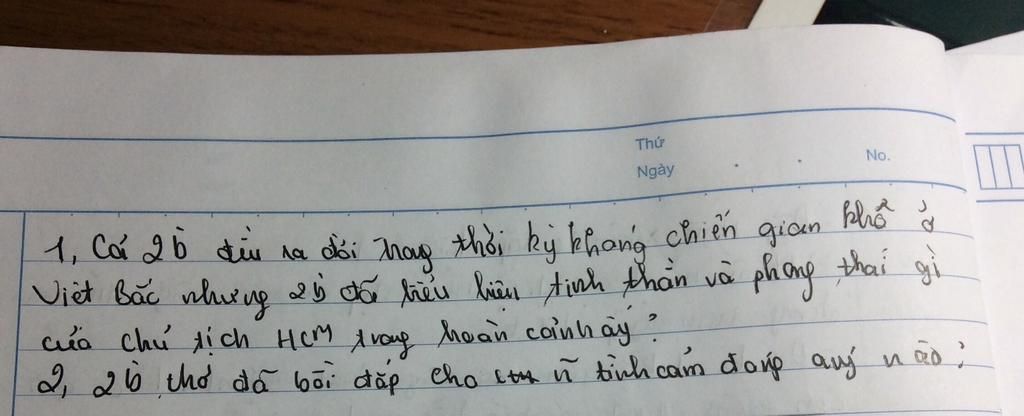 Thứ
Ngày
No.
1, Cả 2b đều ra đời trong thời kỳ kháng chiến gian khổ ở
Việt Bắc nhưng 2b đã biểu hiện tinh thần và phong thái gì
của chủ tịch HCM trong hoàn cảnh ấy?
2, 2b thơ đã bồi đắp cho n~ tình cảm đáng quý nào?